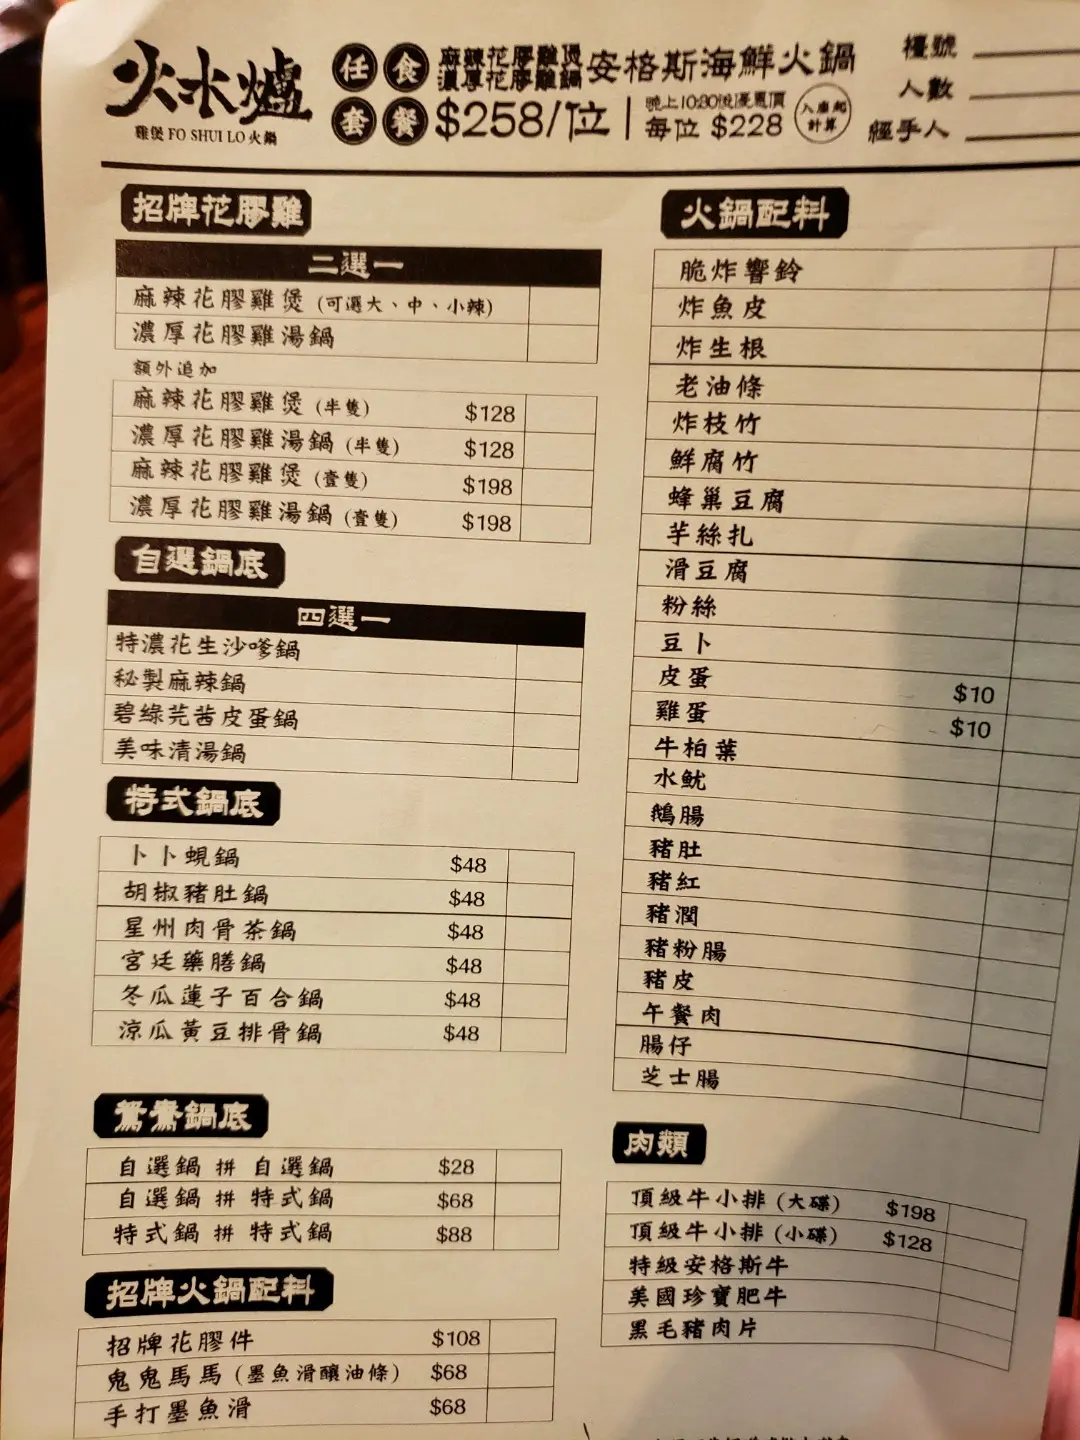 火水爐
雞煲 FO SHUI LO 火鍋
任食套餐
麻辣花膠雞煲
濃厚花膠雞鍋
安格斯海鮮火鍋
$258/位
晚上10:30後優惠價
每位 $228
入座起計算
檯號
人數
經手人
招牌花膠雞
二選一
麻辣花膠雞煲 (可選大、中、小辣)
濃厚花膠雞湯鍋
額外追加
麻辣花膠雞煲 (半隻) $128
濃厚花膠雞湯鍋 (半隻) $128
麻辣花膠雞煲 (壹隻) $198
濃厚花膠雞湯鍋 (壹隻) $198
自選鍋底
四選一
特濃花生沙嗲鍋
秘製麻辣鍋
碧綠芫茜皮蛋鍋
美味清湯鍋
特式鍋底
卜卜蜆鍋 $48
胡椒豬肚鍋 $48
星州肉骨茶鍋 $48
宮廷藥膳鍋 $48
冬瓜蓮子百合鍋 $48
涼瓜黃豆排骨鍋 $48
鴛鴦鍋底
自選鍋 拼 自選鍋 $28
自選鍋 拼 特式鍋 $68
特式鍋 拼 特式鍋 $88
招牌火鍋配料
招牌花膠件 $108
鬼鬼馬馬 (墨魚滑釀油條) $68
手打墨魚滑 $68
火鍋配料
脆炸響鈴
炸魚皮
炸生根
老油條
炸枝竹
鮮腐竹
蜂巢豆腐
芋絲扎
滑豆腐
粉絲
豆卜
皮蛋 $10
雞蛋 $10
牛柏葉
水魷
鵝腸
豬肚
豬紅
豬潤
豬粉腸
豬皮
午餐肉
腸仔
芝士腸
肉類
頂級牛小排 (大碟) $198
頂級牛小排 (小碟) $128
特級安格斯牛
美國珍寶肥牛
黑毛豬肉片